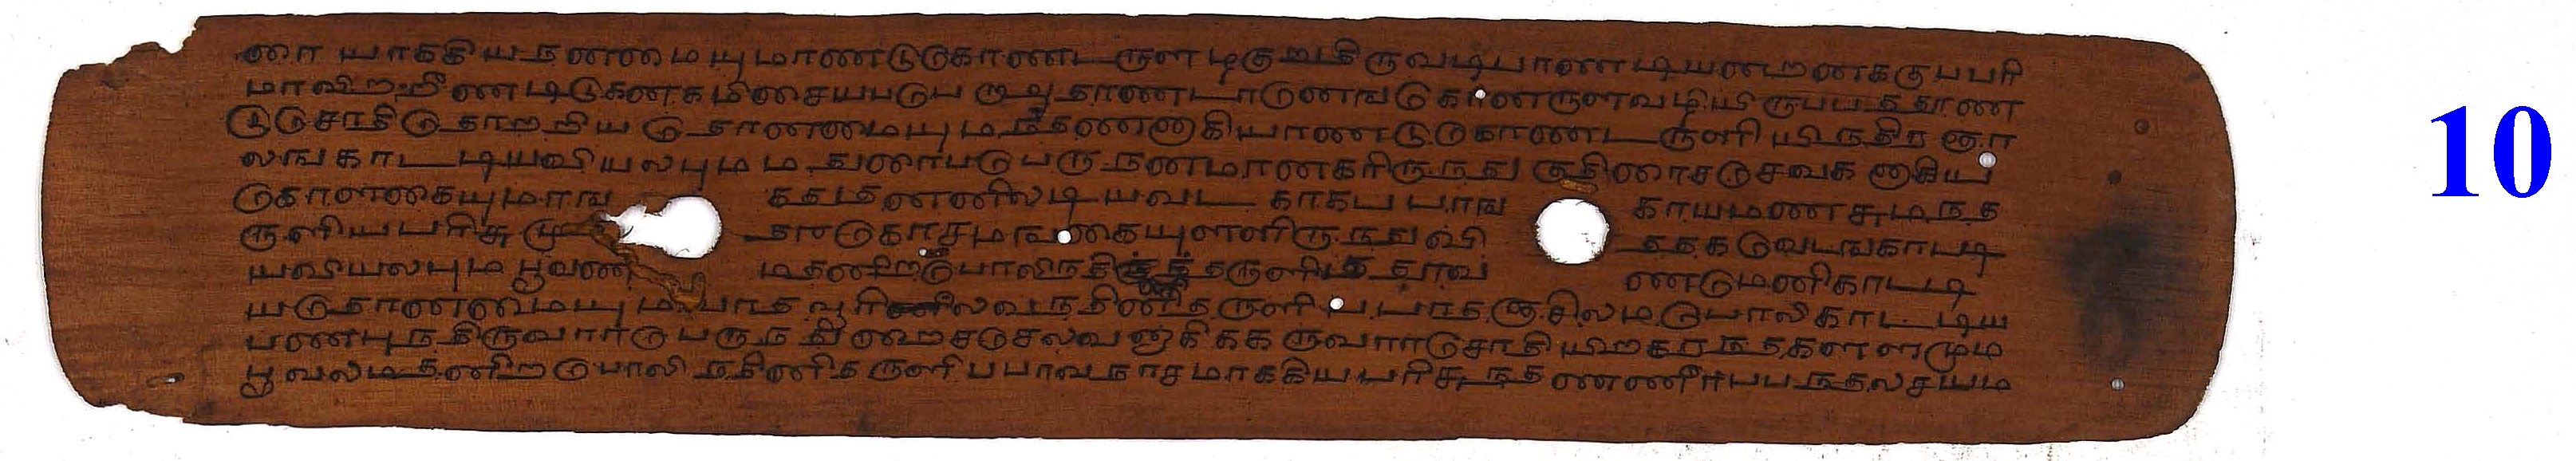 ரை யாககிய நனமையுமாணடுகொணடருள ழகுறுதிருவடிபாணடியனறனககுபபரி
மாவிறறீணடிகனகமிசையபபெருஅதாணடானெஙகோனருளவழியிருபபததூண
டுசோதிதோறறிய தொனமையுமநதணனாகியாணடுகொணடருளியிநதிரஞா
லஙகாடடியவியலபுமமதுரைபபெருநனமாநகரிருநது குதிரைசசேவகனாகிய
கொளகையுமாங கதுதனனிலடியவட காகபபாங காயமணசுமந்த
ருளியபரிசுமு தரகோசமஙகையுளளிருநதுவி ததகவேடஙகாடடி
யவியலபுமபூவண மதனிறபொலிநதிருநதருளிததூவ ணமேனிகாடடி
யதொனமையுமவாதவூரினிலவநதினிதருளிபபாதசசிலமபொலிகாடடிய
பணபுநதிருவாரபெருநதுறைசசெலவனாகிககருவாரசோதியிறகரநதகளளமும
பூவலமதனிறபொலிநதினிதருளிபபாவநாசமாககியபரிசுநதணணீரபபநதலசயம